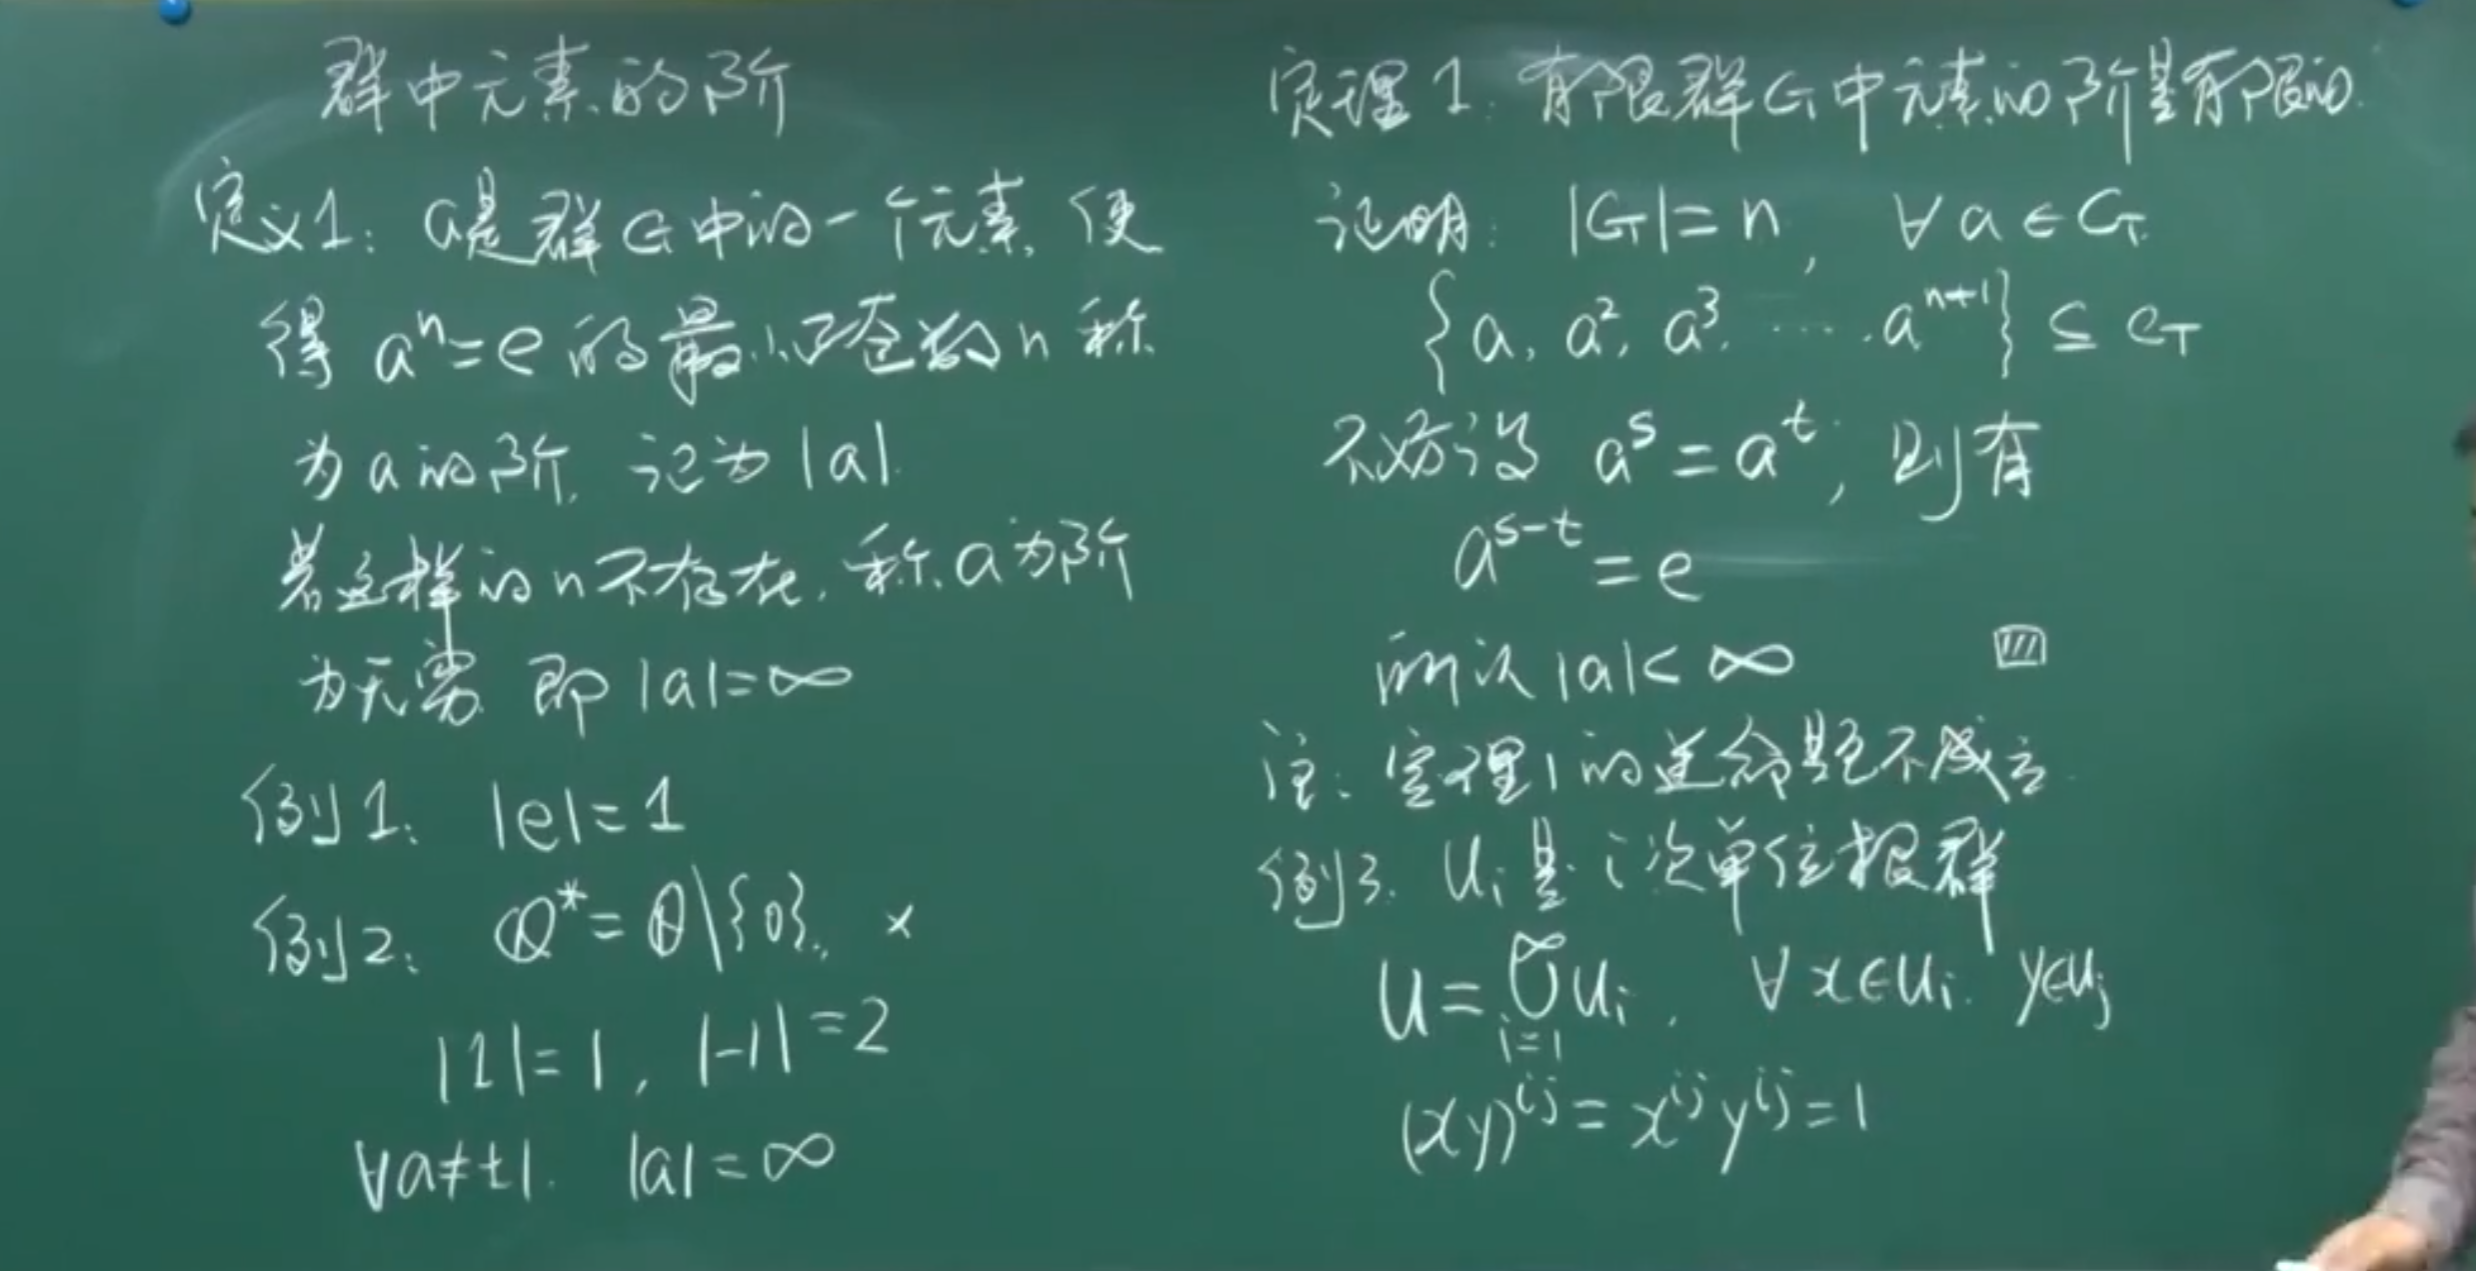 群中元素的阶
定义1: a是群G中的一个元素, 使
得 aⁿ=e 的最小正整数 n 称
为 a 的阶, 记为 |a|.
若这样的 n 不存在, 称 a 为阶
为无穷 即 |a|=∞
例1: |e|=1
例2: ℚ*=ℚ\{0}, ×
|1|=1, |-1|=2
∀a≠±1. |a|=∞
定理1: 有限群G中元素的阶是有限的.
证明: |G|=n, ∀a∈G.
{a, a², a³, ····, aⁿ⁺¹} ⊆ G
不妨设 aˢ=aᵗ, 则有
aˢ⁻ᵗ=e
所以 |a|<∞
注: 定理1的逆命题不成立.
例3. Uᵢ是 i 次单位根群
U=⋃_{i=1}^{∞} Uᵢ, ∀x∈Uᵢ. y∈Uⱼ
(xy)^{ij}=x^{ij}y^{ij}=1